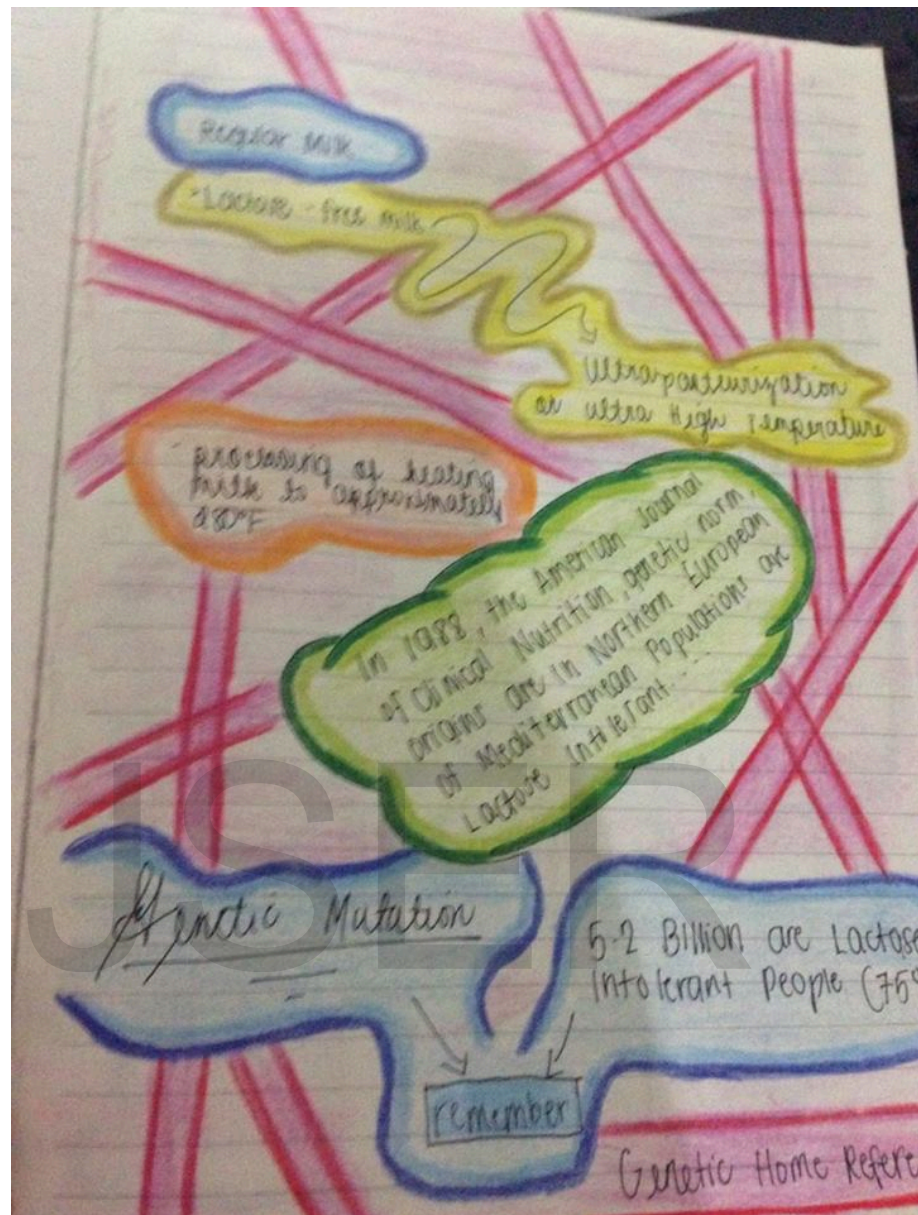 Regular Milk
- Lactose - free milk
Ultrapasteurization
or ultra High Temperature
- processing of heating
milk to approximately
280°F
In 1988, the American Journal
of Clinical Nutrition, genetic norm,
origins are in Northern European
of Mediterranean Populations are
Lactose Intolerant...
Genetic Mutation
5.2 Billion are Lactose
Intolerant People (75%
remember
Genetic Home Refere
JSER